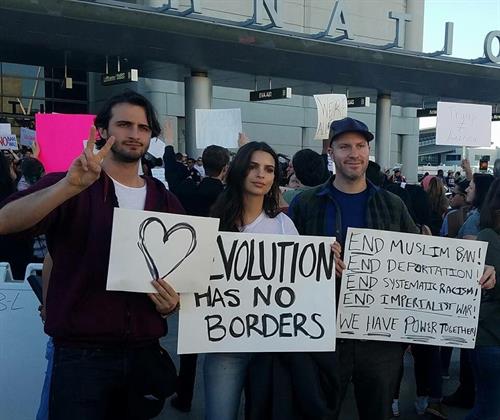 INATIO
EVA AIR
EVOLUTION
HAS NO
BORDERS
END MUSLIM BAN!
END DEPORTATION!
END SYSTEMATIC RACISM!
END IMPERIALIST WAR!
WE HAVE POWER TOGETHER!